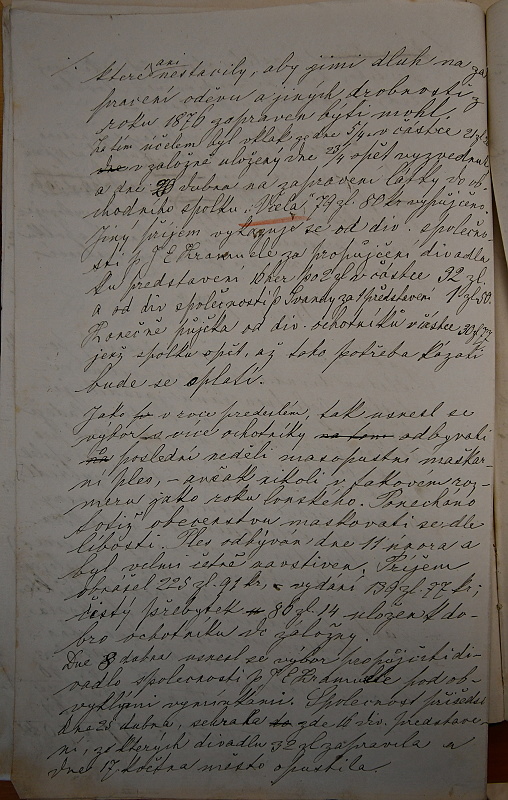 které ani nestačily, aby jimi dluh na za-
pravení oděvu a jiných drobností z
roku 1876 zapraven býti mohl,
za tím účelem byl vklad ze dne 4/4 v částce
v záložně uložený dne 23/4 opět vyzvednut
a dne 23 dubna na zapravení látky do ob-
chodního spolku "Včela" 79 zl. 80 kr vypůjčeno.
Jiný příjem vykazuje se od div. společno-
sti p. J. E. Kramuele za propůjčení divadla
ku představení 16 her po 2 zl v částce 32 zl.
a od div společnosti p Švandy za 1 představení 1 zl 50.
Konečně půjčka od div. ochotníků v částce 30 zl
jenž spolku opět, až toho potřeba kázati
bude se oplatí.
Jako v roce předešlém, tak usnesl se
výbor s více ochotníky odbyvati
poslední neděli masopustní maškar-
ní ples, – avšak nikoli v takovém roz-
měru jako roku lonského. Ponecháno
totiž obecenstvu maskovati se dle
libosti. Ples odbýván dne 11 února a
byl velmi četně navštíven. Příjem
obnášel 225 zl. 91 kr, – vydání 139 zl. 77 kr;
čistý přebytek 86 zl. 14 uložen k do-
bro ochotníků do záložny.
Dne 8 dubna usnesl se výbor propůjčiti di-
vadlo společnosti p J E Kramuele pod ob-
vyklými výminkami. Společnost přišedši
dne 20 dubna, sehrála zde 16 div. představe-
ní, ze kterých divadlu 32 zl zapravila a
dne 17 května město opustila.